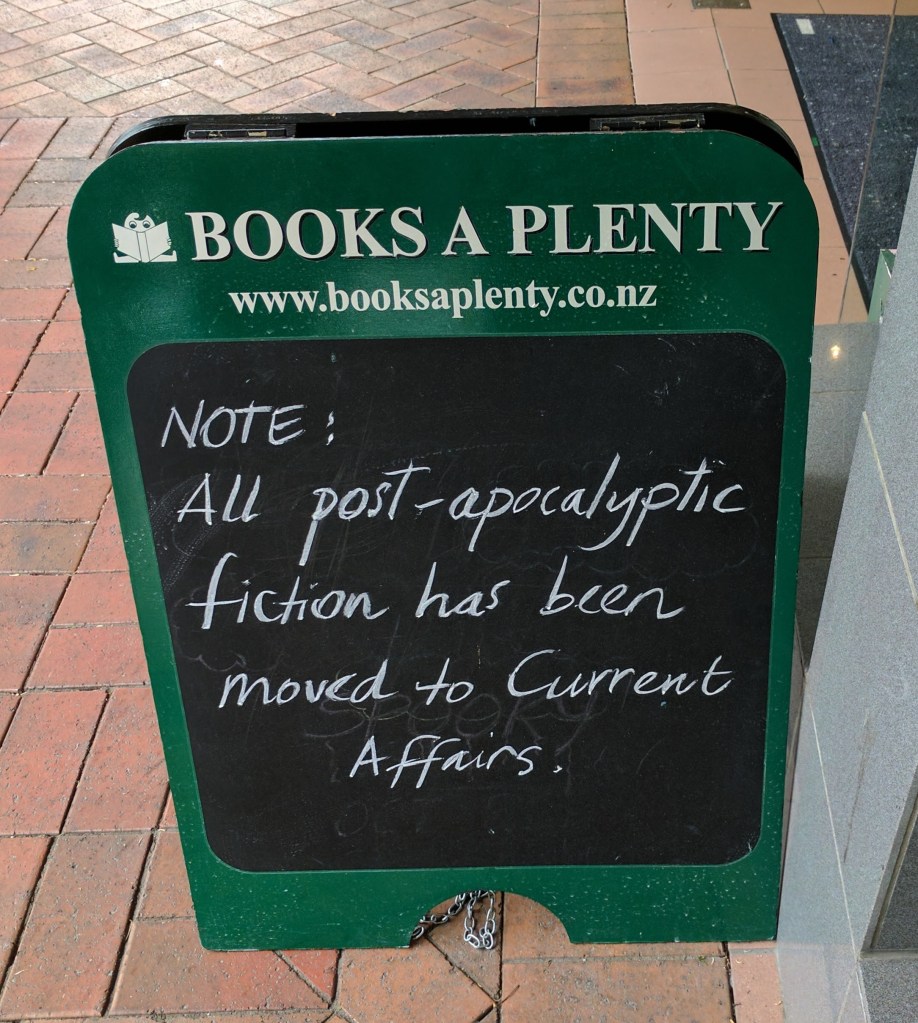 BOOKS A PLENTY
www.booksaplenty.co.nz
NOTE:
All post-apocalyptic
fiction has been
moved to Current
SPOOKY
Affairs.